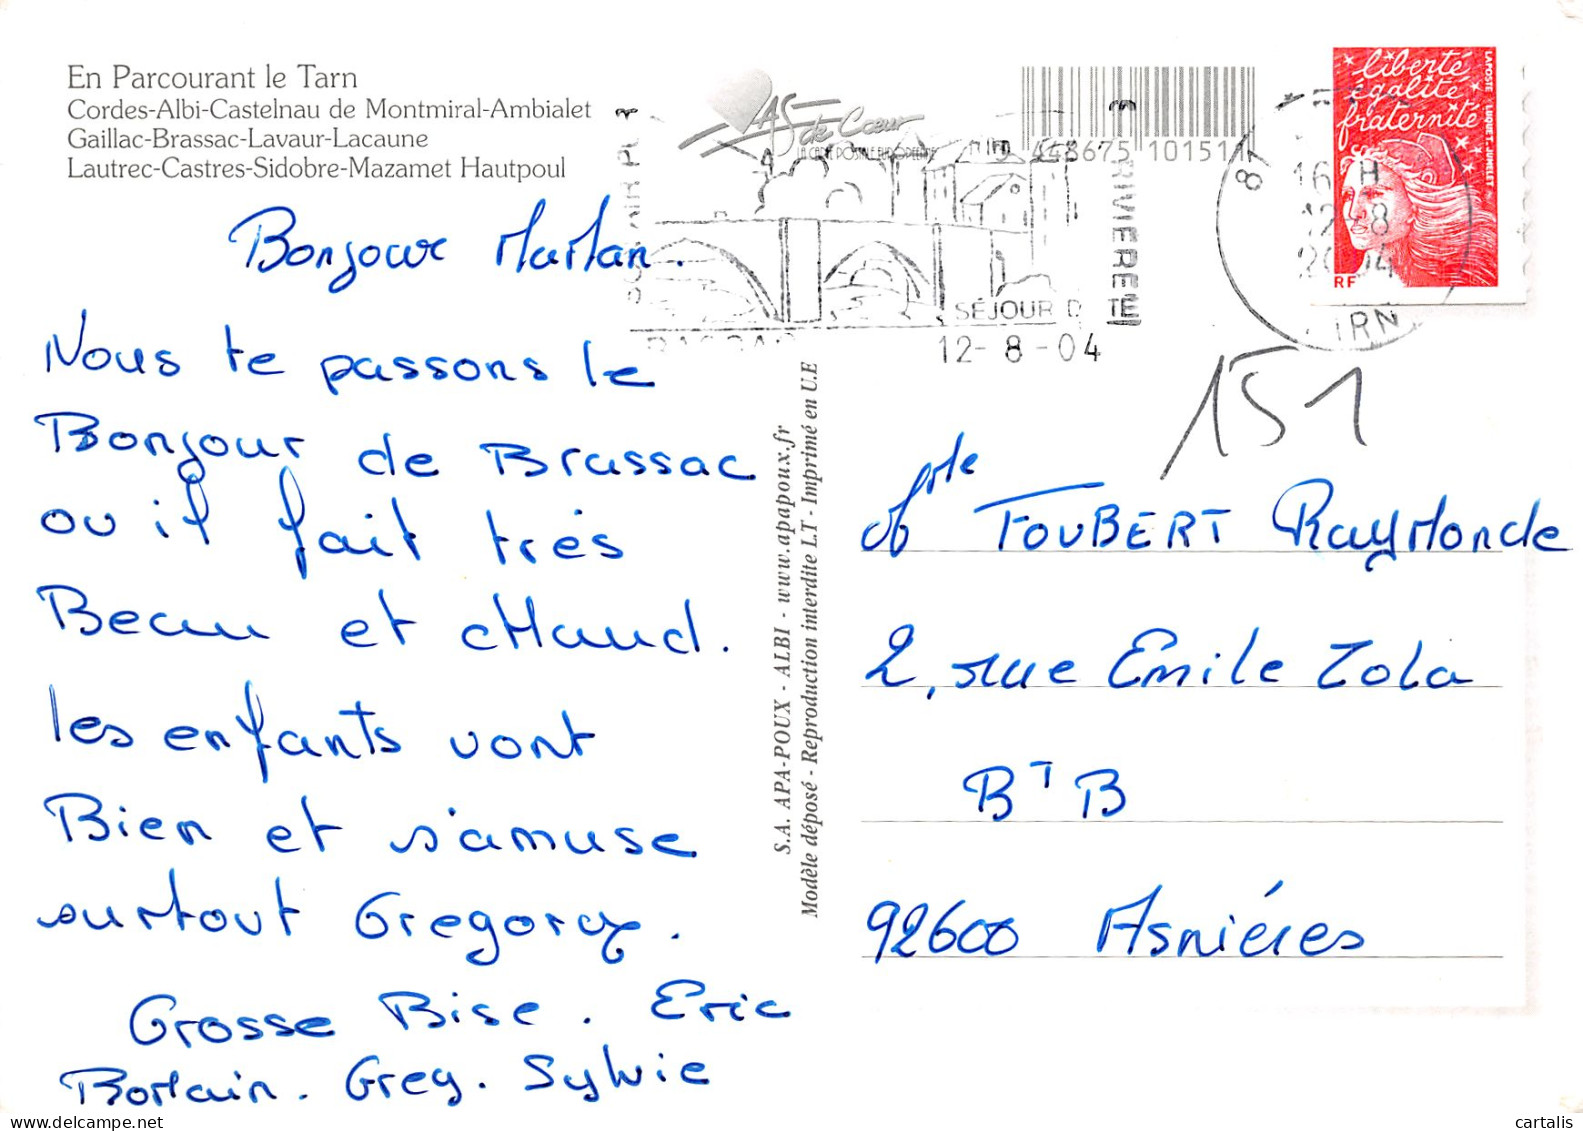 En Parcourant le Tarn
Cordes-Albi-Castelnau de Montmiral-Ambialet
Gaillac-Brassac-Lavaur-Lacaune
Lautrec-Castres-Sidobre-Mazamet Hautpoul
AS de Cœur
LA CARTE POSTALE EUROPEENNE
448675 101511
liberté
égalité
fraternité
LAPOSTE LUQUET JUMELET
RF
16 H
12 8
2004
TARN
81
RIVIERE
SÉJOUR D'ETE
12-8-04
151
Bonjour Maman.
Nous te passons le
Bonjour de Brassac
ou il fait trés
Beau et cHaud.
les enfants vont
Bien et s'amuse
surtout Gregory.
Grosse Bise. Eric
Greg. Sylvie
S.A. APA-POUX - ALBI - www.apapoux.fr
Modèle déposé - Reproduction interdite L.T - Imprimé en U.E
TOUBERT RayMonde
2, rue Emile Zola
BT B
92600 Asniéres
cartalis